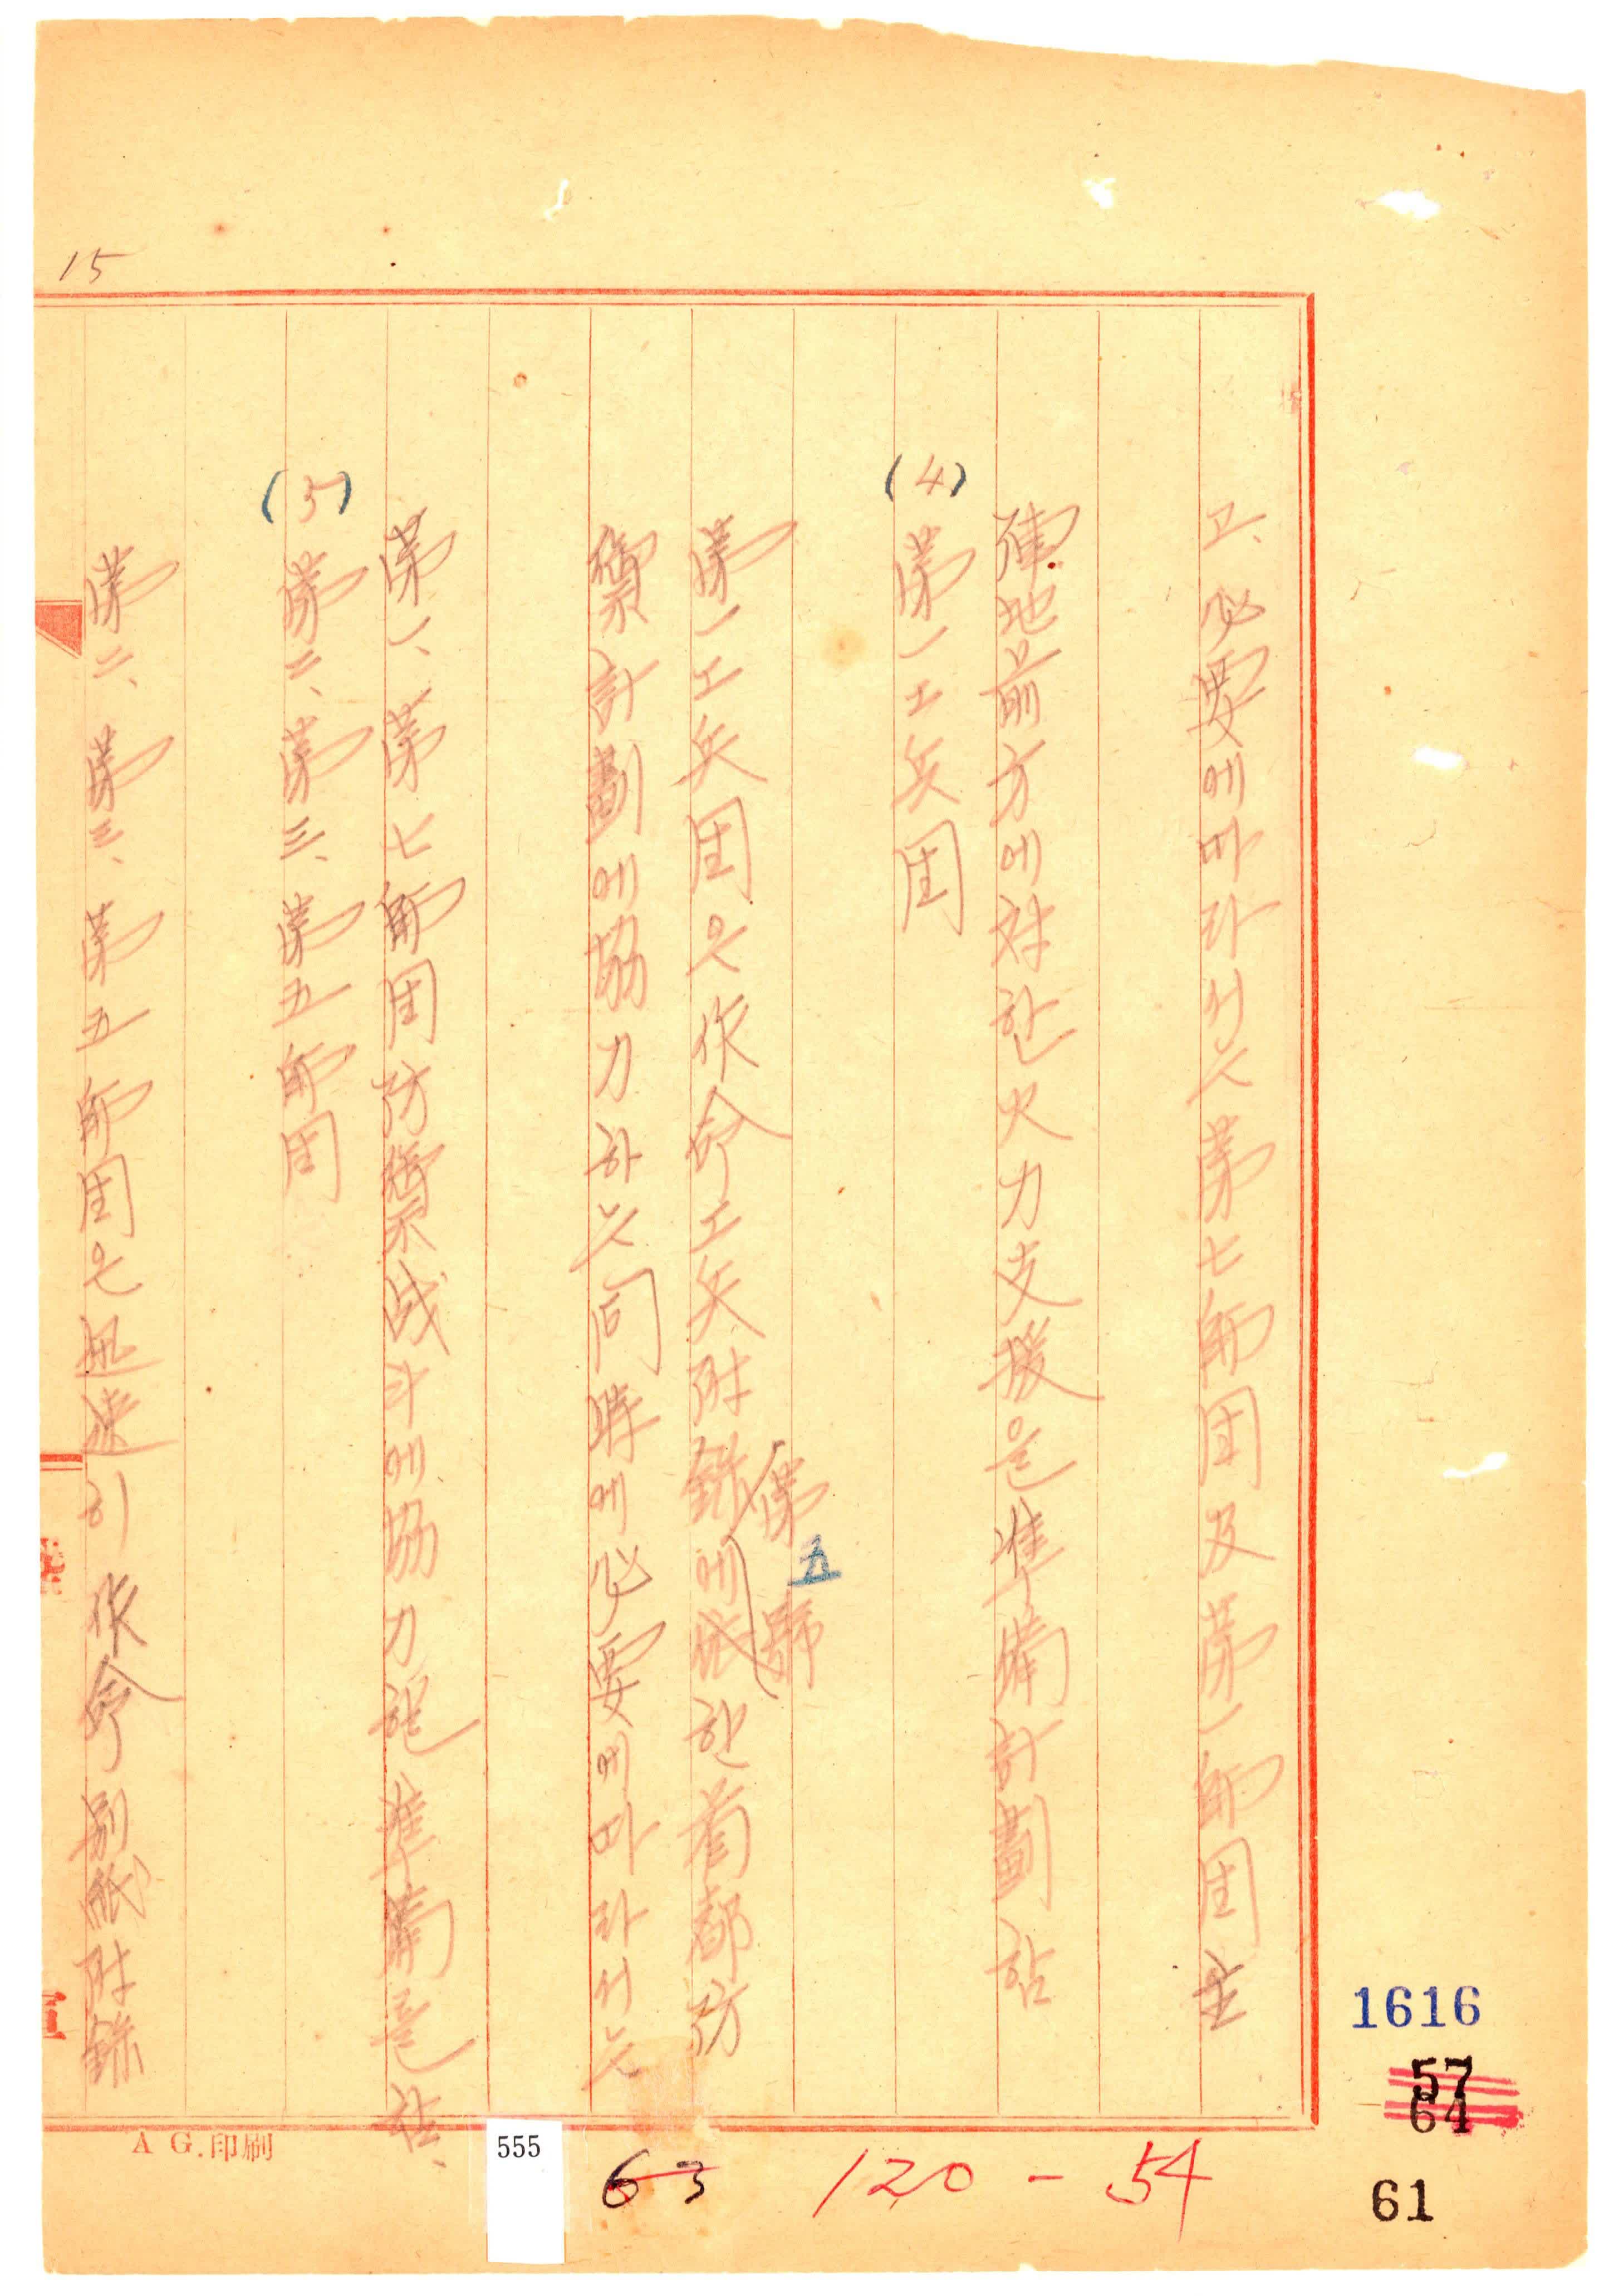 고、必要에따라서는第七師団及第一師団主
陣地前方에対한火力支援을準備計劃함
(4) 第一工兵団
第一工兵団은作命工兵附録第五號에依한首都防
禦計劃에協力하는同時에必要에따라서는
第一、第七師団防禦战斗에協力할準備를함、
(5) 第二、第三、第五師団
第二、第三、第五師団은迅速히作命別紙附録
15
1616
57
64
61
120-54
63
555
A G.印刷